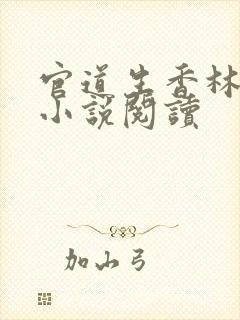 官道生香林
小說閱讀
加山弓